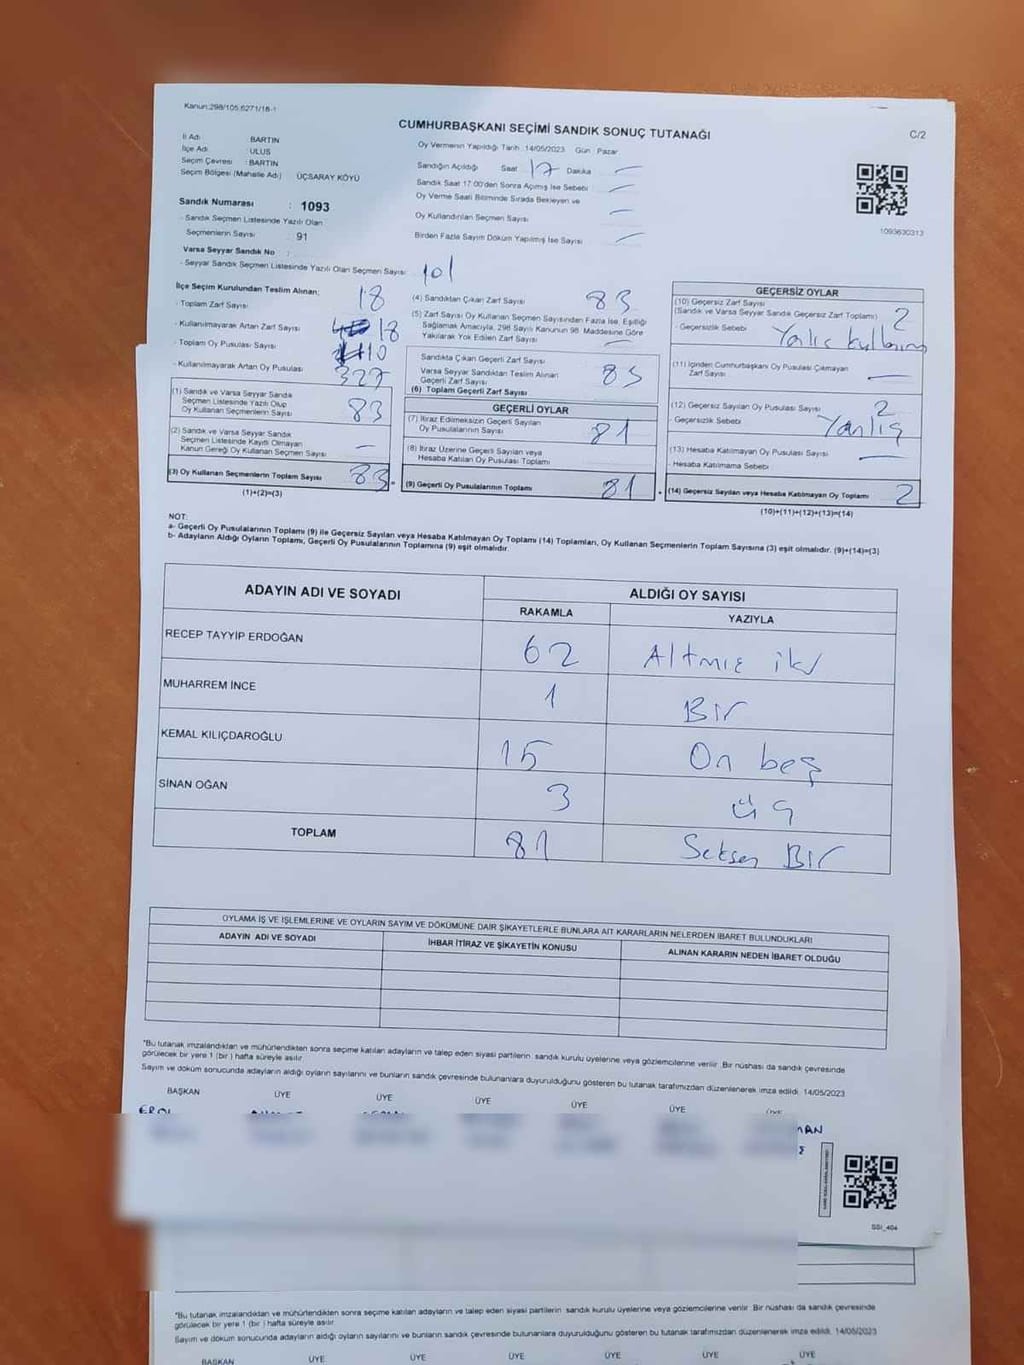 Kanun:298/105,6271/18-1
CUMHURBAŞKANI SEÇİMİ SANDIK SONUÇ TUTANAĞI
C/2
İl Adı : BARTIN
İlçe Adı : ULUS
Seçim Çevresi : BARTIN
Seçim Bölgesi (Mahalle Adı) ÜÇSARAY KÖYÜ
Sandık Numarası : 1093
- Sandık Seçmen Listesinde Yazılı Olan
Seçmenlerin Sayısı : 91
Varsa Seyyar Sandık No :
- Seyyar Sandık Seçmen Listesinde Yazılı Olan Seçmen Sayısı
101
Oy Vermenin Yapıldığı Tarih :14/05/2023 Gün : Pazar
Sandığın Açıldığı Saat 17 Dakika —
Sandık Saat 17:00'den Sonra Açılmış İse Sebebi —
Oy Verme Saati Bitiminde Sırada Bekleyen ve
Oy Kullandırılan Seçmen Sayısı —
Birden Fazla Sayım Döküm Yapılmış İse Sayısı —
1093630313
İlçe Seçim Kurulundan Teslim Alınan;
- Toplam Zarf Sayısı 18
- Kullanılmayarak Artan Zarf Sayısı 18
- Toplam Oy Pusulası Sayısı
- Kullanılmayarak Artan Oy Pusulası 327
(1) Sandık ve Varsa Seyyar Sandık
Seçmen Listesinde Yazılı Olup
Oy Kullanan Seçmenlerin Sayısı 83
(2) Sandık ve Varsa Seyyar Sandık
Seçmen Listesinde Kayıtlı Olmayan
Kanun Gereği Oy Kullanan Seçmen Sayısı —
(3) Oy Kullanan Seçmenlerin Toplam Sayısı 83 =
(1)+(2)=(3)
(4) Sandıktan Çıkan Zarf Sayısı 83
(5) Zarf Sayısı Oy Kullanan Seçmen Sayısından Fazla İse, Eşitliği
Sağlamak Amacıyla, 298 Sayılı Kanunun 98. Maddesine Göre
Yakılarak Yok Edilen Zarf Sayısı —
Sandıkta Çıkan Geçerli Zarf Sayısı
Varsa Seyyar Sandıktan Teslim Alınan
Geçerli Zarf Sayısı
(6) Toplam Geçerli Zarf Sayısı 83
GEÇERLİ OYLAR
(7) İtiraz Edilmeksizin Geçerli Sayılan
Oy Pusulalarının Sayısı 81
(8) İtiraz Üzerine Geçerli Sayılan veya
Hesaba Katılan Oy Pusulası Toplamı
(9) Geçerli Oy Pusulalarının Toplamı 81 +
GEÇERSİZ OYLAR
(10) Geçersiz Zarf Sayısı
(Sandık ve Varsa Seyyar Sandık Geçersiz Zarf Toplamı) 2
- Geçersizlik Sebebi
(11) İçinden Cumhurbaşkanı Oy Pusulası Çıkmayan
Zarf Sayısı —
(12) Geçersiz Sayılan Oy Pusulası Sayısı 2
- Geçersizlik Sebebi Yanlış
(13) Hesaba Katılmayan Oy Pusulası Sayısı —
- Hesaba Katılmama Sebebi
(14) Geçersiz Sayılan veya Hesaba Katılmayan Oy Toplamı 2
(10)+(11)+(12)+(13)=(14)
NOT:
a- Geçerli Oy Pusulalarının Toplamı (9) ile Geçersiz Sayılan veya Hesaba Katılmayan Oy Toplamı (14) Toplamları, Oy Kullanan Seçmenlerin Toplam Sayısına (3) eşit olmalıdır. (9)+(14)=(3)
b- Adayların Aldığı Oyların Toplamı, Geçerli Oy Pusulalarının Toplamına (9) eşit olmalıdır.
ADAYIN ADI VE SOYADI ALDIĞI OY SAYISI
RAKAMLA YAZIYLA
RECEP TAYYİP ERDOĞAN 62 Altmış iki
MUHARREM İNCE 1 Bir
KEMAL KILIÇDAROĞLU 15 On beş
SİNAN OĞAN 3 üç
TOPLAM 81 Seksen Bir
OYLAMA İŞ VE İŞLEMLERİNE VE OYLARIN SAYIM VE DÖKÜMÜNE DAİR ŞİKAYETLERLE BUNLARA AİT KARARLARIN NELERDEN İBARET BULUNDUKLARI
ADAYIN ADI VE SOYADI İHBAR İTİRAZ VE ŞİKAYETİN KONUSU ALINAN KARARIN NEDEN İBARET OLDUĞU
*Bu tutanak imzalandıktan ve mühürlendikten sonra seçime katılan adayların ve talep eden siyasi partilerin sandık kurulu üyelerine veya gözlemcilerine verilir. Bir nüshası da sandık çevresinde
görülecek bir yere 1 (bir ) hafta süreyle asılır.
Sayım ve döküm sonucunda adayların aldığı oyların sayılarını ve bunların sandık çevresinde bulunanlara duyurulduğunu gösteren bu tutanak tarafımızdan düzenlenerek imza edildi. 14/05/2023
BAŞKAN ÜYE ÜYE ÜYE ÜYE ÜYE ÜYE
SSI_404
*Bu tutanak imzalandıktan ve mühürlendikten sonra seçime katılan adayların ve talep eden siyasi partilerin sandık kurulu üyelerine veya gözlemcilerine verilir. Bir nüshası da sandık çevresinde
görülecek bir yere 1 (bir ) hafta süreyle asılır.
Sayım ve döküm sonucunda adayların aldığı oyların sayılarını ve bunların sandık çevresinde bulunanlara duyurulduğunu gösteren bu tutanak tarafımızdan düzenlenerek imza edildi. 14/05/2023
BAŞKAN ÜYE ÜYE ÜYE ÜYE ÜYE ÜYE